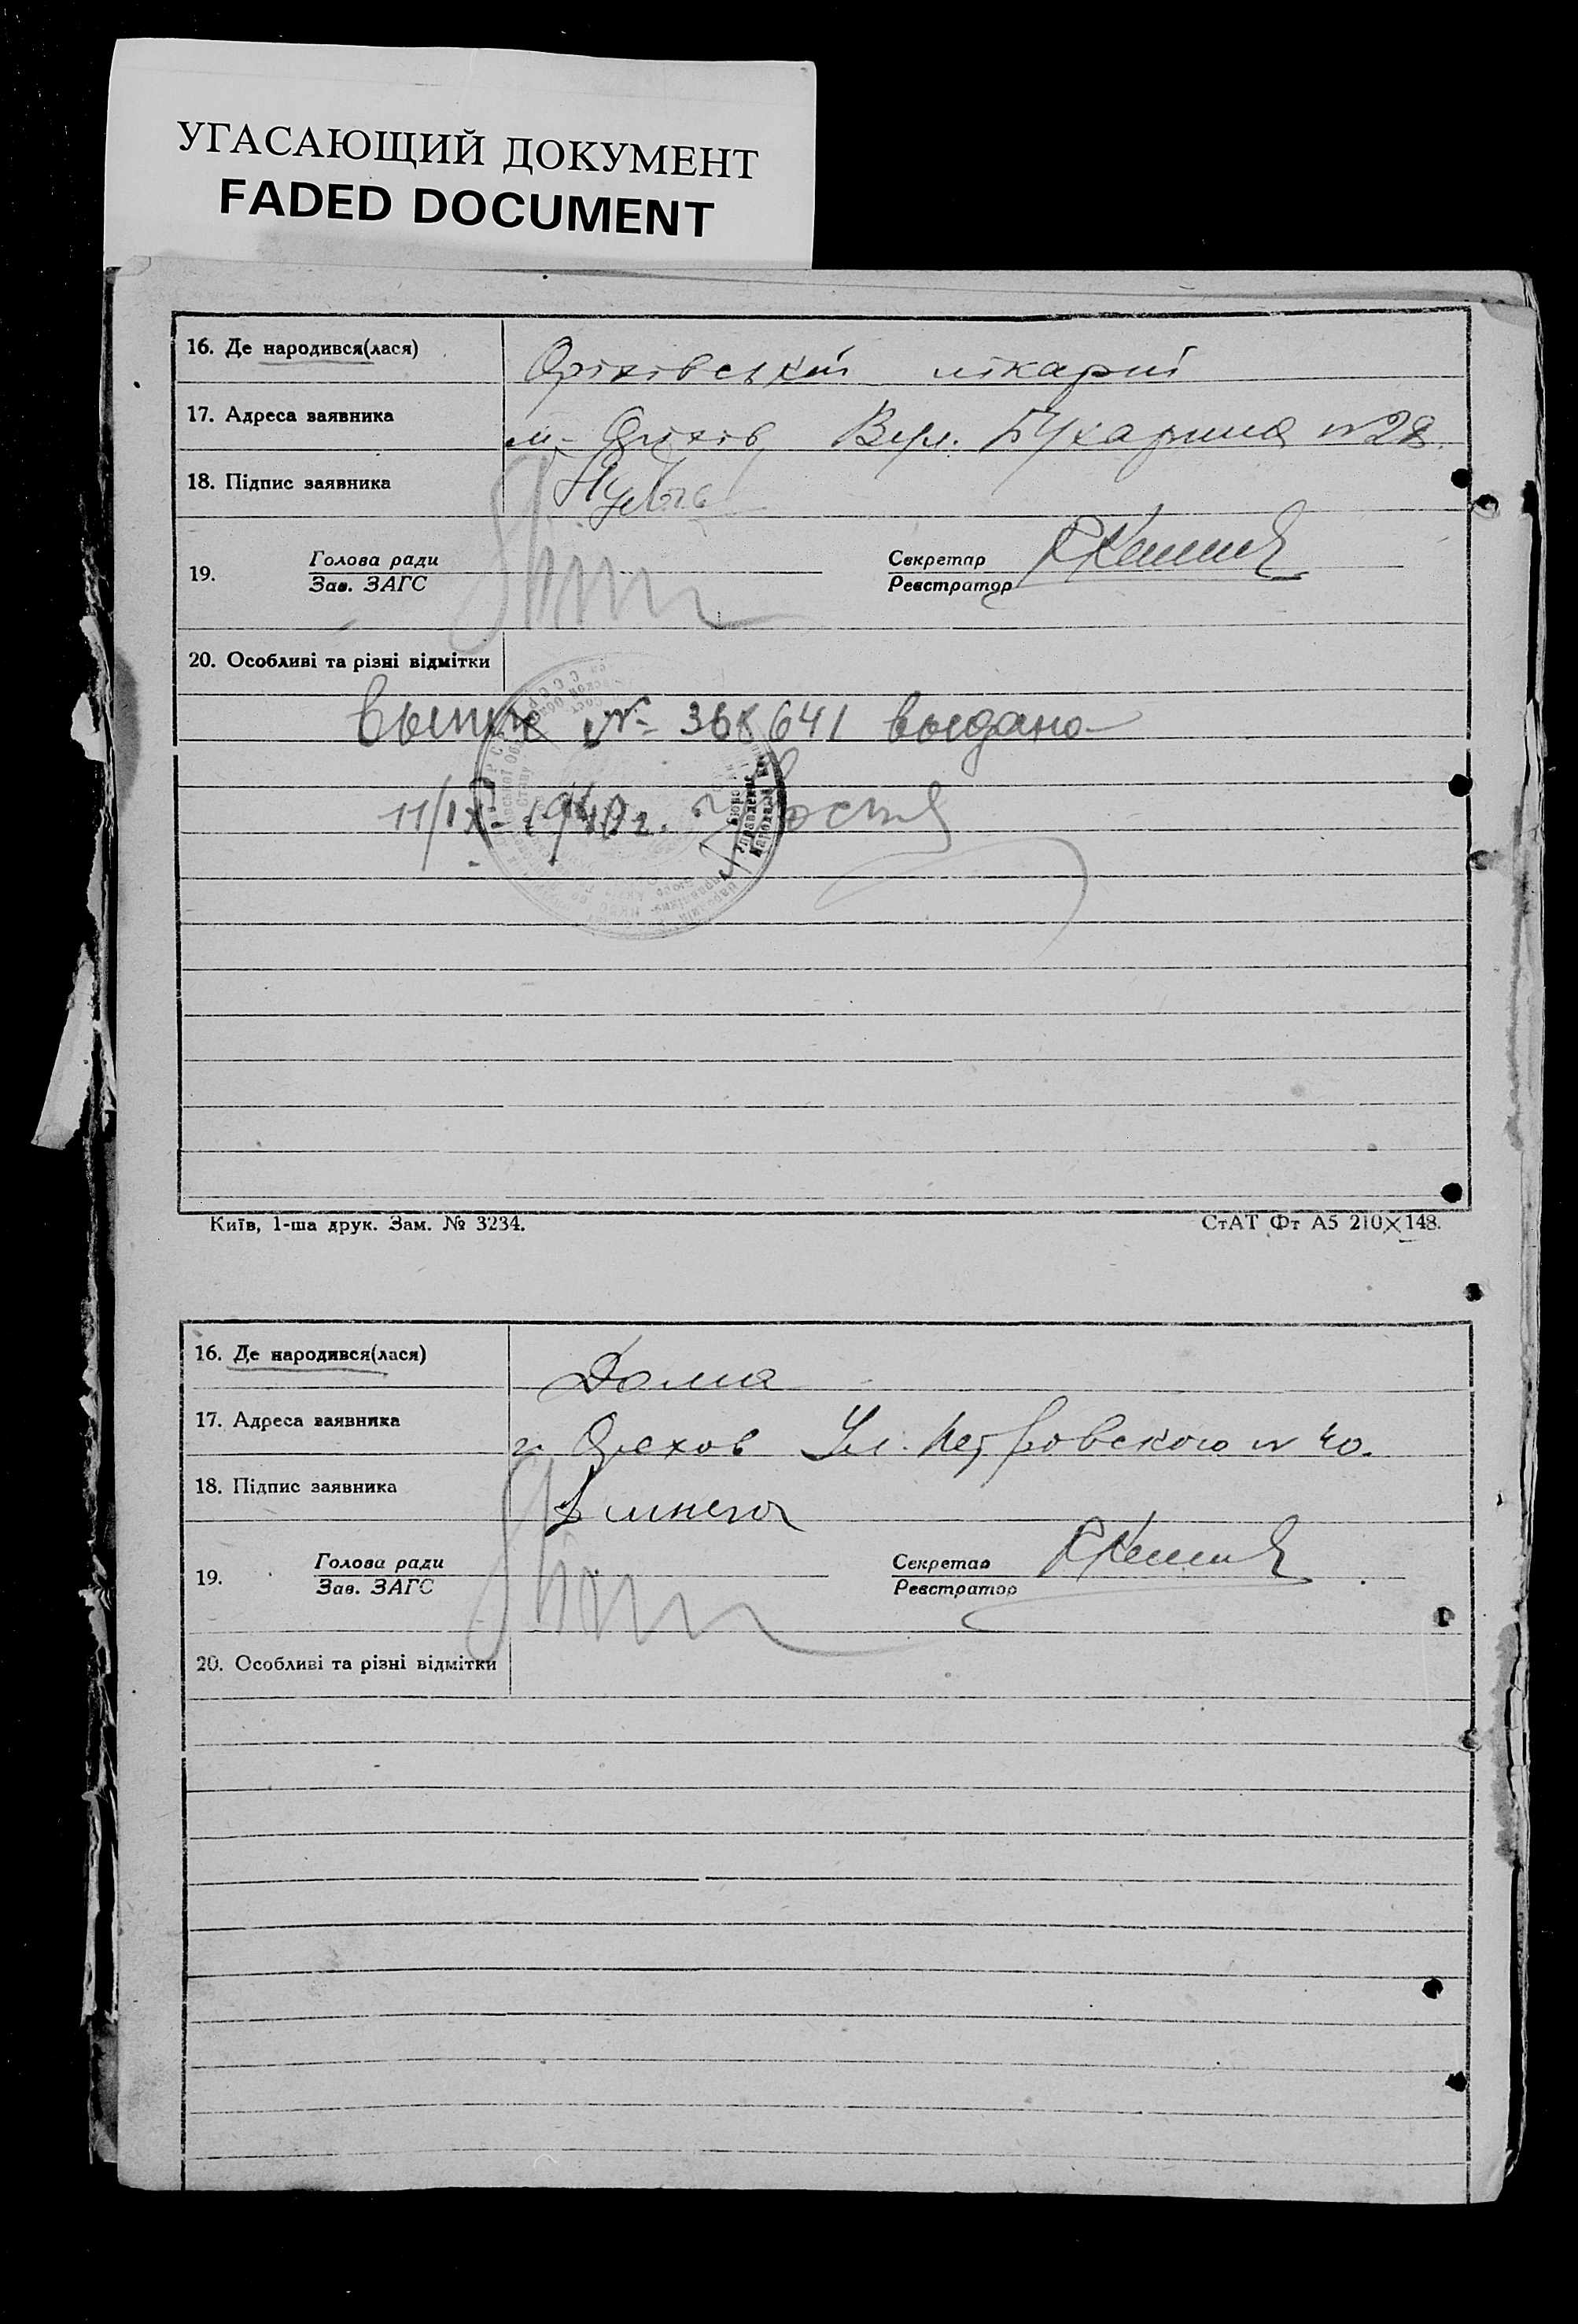 УГАСАЮЩИЙ ДОКУМЕНТ
FADED DOCUMENT
16. Де народився(лася) Оріхівській лікарні
17. Адреса заявника м. Оріхів Вул. Бухарина №28.
18. Підпис заявника
19. Голова ради Секретар
Зав. ЗАГС Реєстратор
20. Особливі та різні відмітки
№ 368641 выдано
11/IX-1940г.
Київ, 1-ша друк. Зам. № 3234. СтАТ Фт А5 210×148.
16. Де народився(лася) Дома
17. Адреса заявника г. Орехов Ул. Петровского № 40.
18. Підпис заявника
19. Голова ради Секретар
Зав. ЗАГС Реєстратор
20. Особливі та різні відмітки